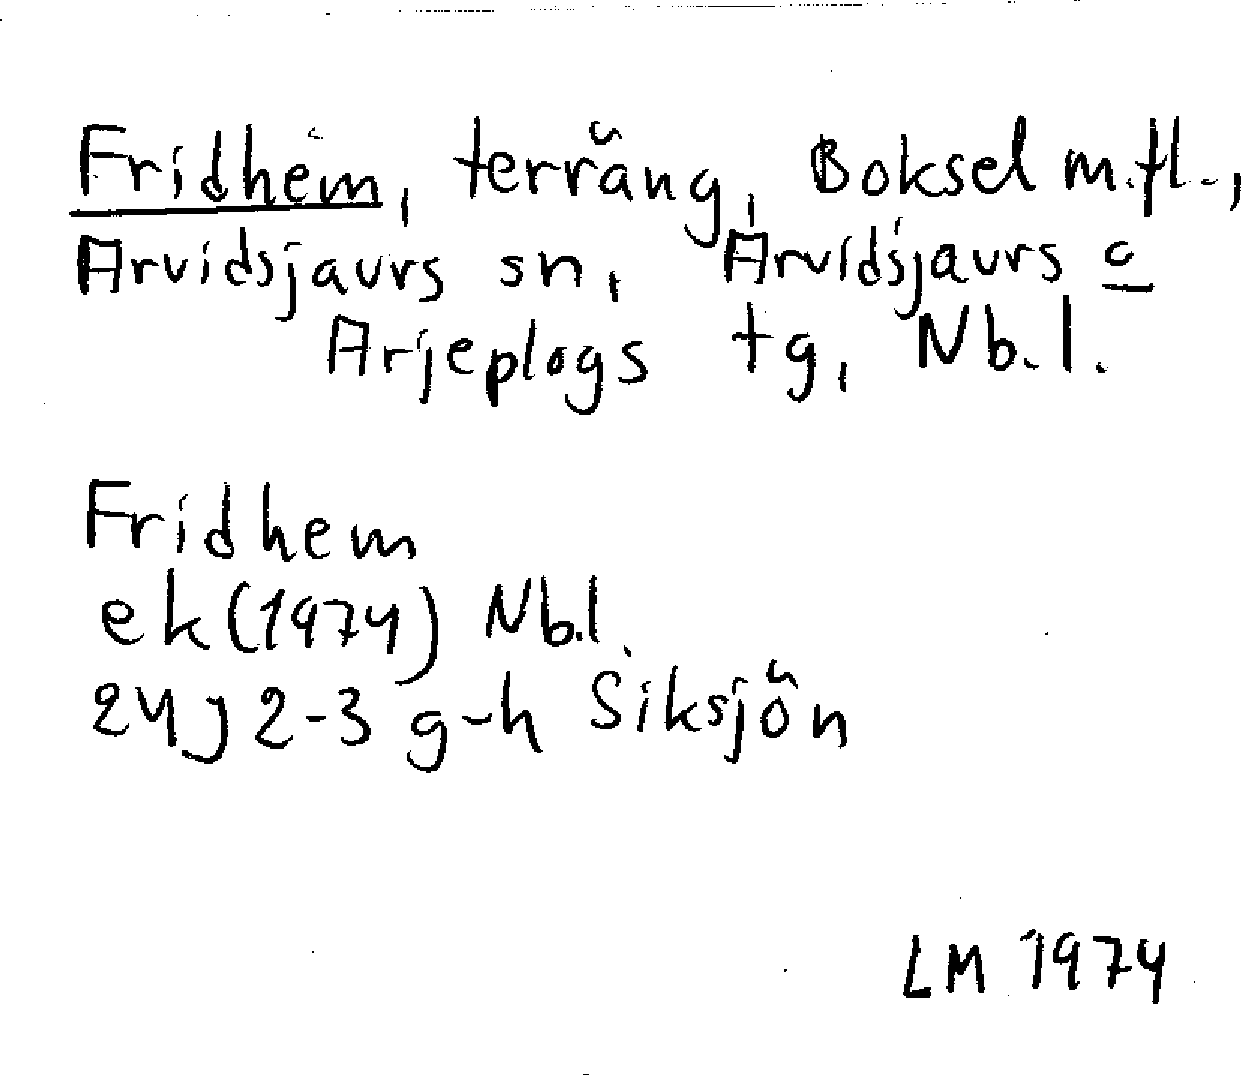 Fridhem, terräng, Boksel m.fl.,
Arvidsjaurs sn, Arvidsjaurs o
Arjeplogs tg, Nb.l.
Fridhem
ek (1974) Nb.l.
24J 2-3 g-h Siksjön
LM 1974